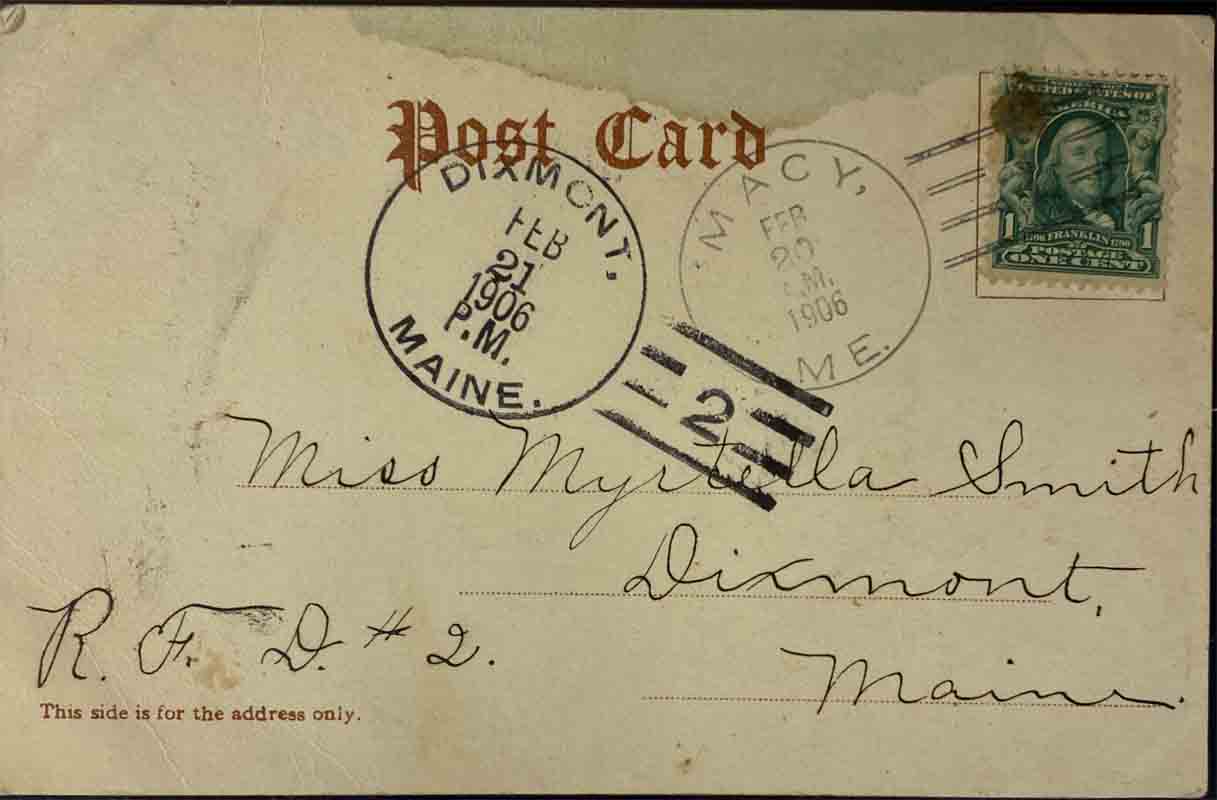 Post Card
DIXMONT,
FEB
21
1906
P.M.
MAINE.
MACY,
FEB
20
M.
1906
ME.
2
UNITED STATES OF
AMERICA
1 1
1706 FRANKLIN 1790
POSTAGE
ONE CENT
Miss Myrtella Smith
Dixmont,
Maine.
R. F. D. # 2.
This side is for the address only.